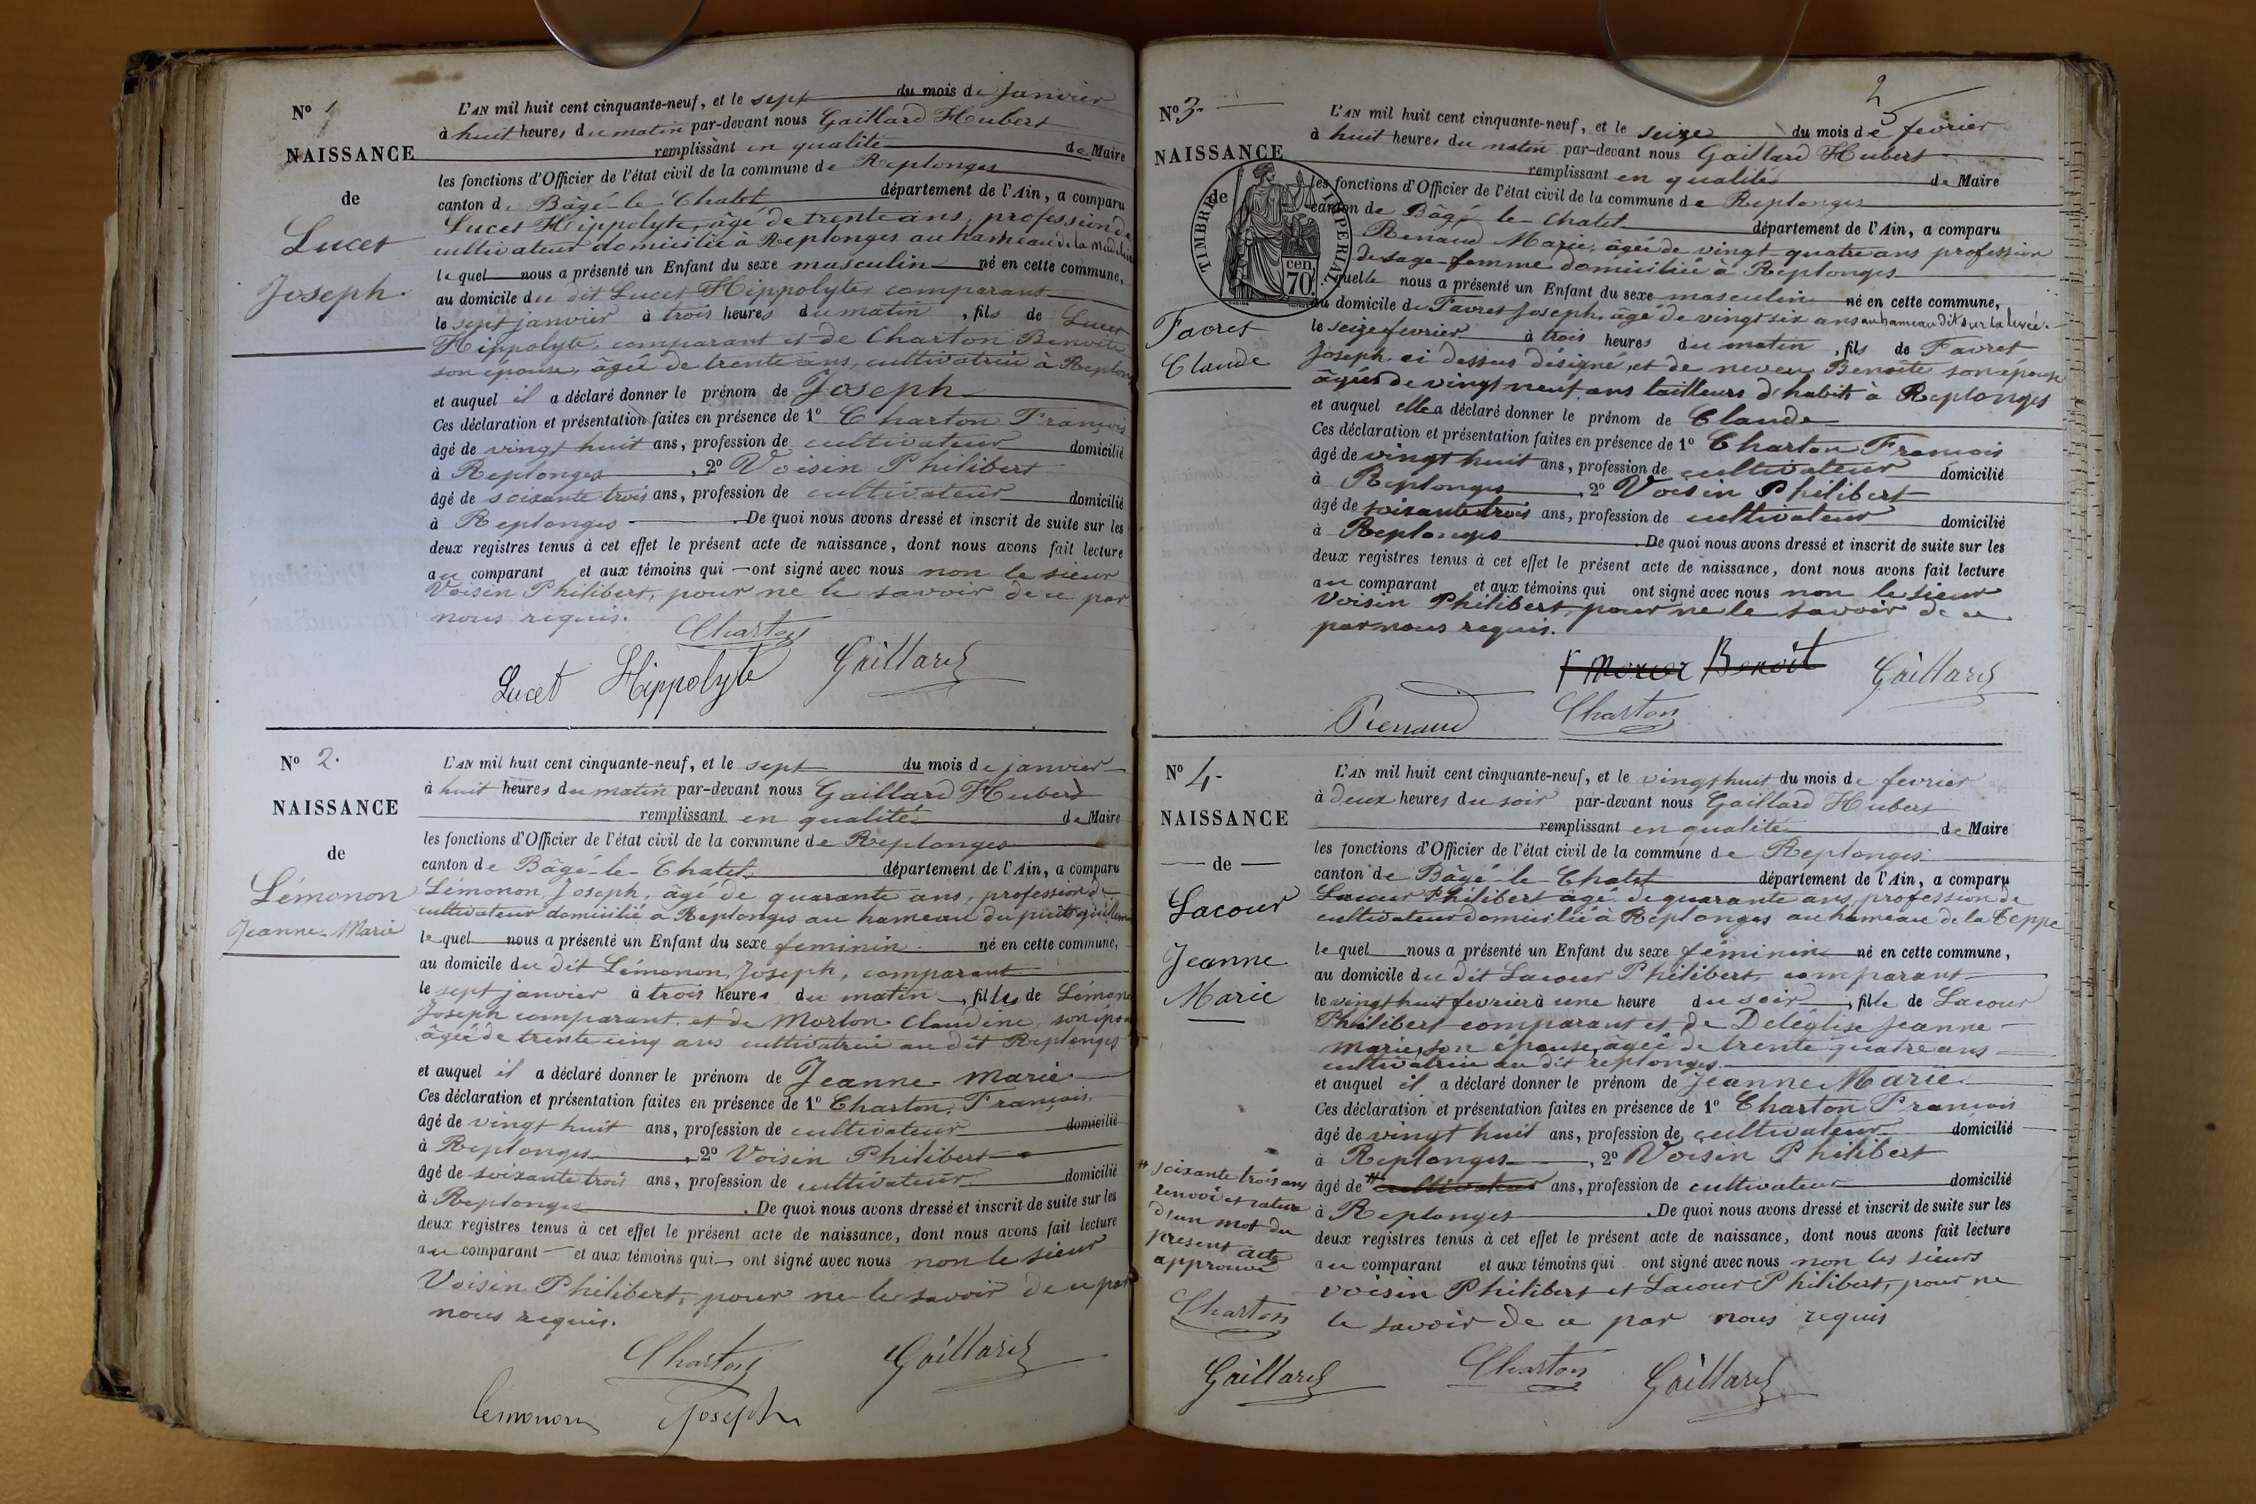 N° 1
NAISSANCE
de
Lucet
Joseph.
L'AN mil huit cent cinquante-neuf, et le sept du mois de Janvier
à huit heures du matin par-devant nous Gaillard Hubert
remplissant en qualité de Maire
les fonctions d'Officier de l'état civil de la commune de Replonges
canton de Bâgé-le-Chatel département de l'Ain, a comparu
Lucet Hippolyte, âgé de trente ans, profession de
cultivateur domicilié à Replonges au hameau de la
le quel nous a présenté un Enfant du sexe masculin né en cette commune,
au domicile du dit Lucet Hippolyte comparant
le sept janvier à trois heures du matin, fils de Lucet
Hippolyte, comparant et de Charton Benoite
son épouse, âgée de trente ans, cultivatrice à Replonges
et auquel il a déclaré donner le prénom de Joseph
Ces déclaration et présentation faites en présence de 1° Charton François
âgé de vingt huit ans, profession de cultivateur domicilié
à Replonges, 2° Voisin Philibert
âgé de soixante trois ans, profession de cultivateur domicilié
à Replonges. De quoi nous avons dressé et inscrit de suite sur les
deux registres tenus à cet effet le présent acte de naissance, dont nous avons fait lecture
au comparant et aux témoins qui ont signé avec nous non le sieur
Voisin Philibert, pour ne le savoir de ce par
nous requis.
Charton
Lucet Hippolyte Gaillard
N° 2.
NAISSANCE
de
Lémonon
Jeanne-Marie
L'AN mil huit cent cinquante-neuf, et le sept du mois de janvier
à huit heures du matin par-devant nous Gaillard Hubert
remplissant en qualité de Maire
les fonctions d'Officier de l'état civil de la commune de Replonges
canton de Bâgé-le-Chatel département de l'Ain, a comparu
Lémonon Joseph, âgé de quarante ans, profession de
cultivateur domicilié à Replonges au hameau du
le quel nous a présenté un Enfant du sexe feminin né en cette commune,
au domicile du dit Lémonon Joseph, comparant
le sept janvier à trois heures du matin, fille de Lémonon
Joseph comparant et de Morlon Claudine, son épouse
âgée de trente cinq ans cultivatrice au dit Replonges
et auquel il a déclaré donner le prénom de Jeanne-Marie
Ces déclaration et présentation faites en présence de 1° Charton, François
âgé de vingt huit ans, profession de cultivateur domicilié
à Replonges, 2° Voisin Philibert
âgé de soixante trois ans, profession de cultivateur domicilié
à Replonges. De quoi nous avons dressé et inscrit de suite sur les
deux registres tenus à cet effet le présent acte de naissance, dont nous avons fait lecture
au comparant et aux témoins qui ont signé avec nous non le sieur
Voisin Philibert, pour ne le savoir de ce par
nous requis.
Charton Gaillard
Lémonon Joseph
2
N° 3.
NAISSANCE
de
TIMBRE IMPERIAL
70 cen.
Favret
Claude
L'AN mil huit cent cinquante-neuf, et le seize du mois de fevrier
à huit heures du matin par-devant nous Gaillard Hubert
remplissant en qualité de Maire
les fonctions d'Officier de l'état civil de la commune de Replonges
canton de Bâgé-le-Chatel département de l'Ain, a comparu
Renaud Marie, âgée de vingt quatre ans profession
de sage-femme domiciliée à Replonges
quelle nous a présenté un Enfant du sexe masculin né en cette commune,
au domicile de Favret Joseph, âgé de vingt six ans au hameau dit sur la levée.
le seize fevrier à trois heures du matin, fils de Favret
Joseph ci dessus désigné, et de neveu Benoîte son épouse
âgée de vingt neuf ans tailleurs d'habits à Replonges
et auquel elle a déclaré donner le prénom de Claude
Ces déclaration et présentation faites en présence de 1° Charton François
âgé de vingt huit ans, profession de cultivateur domicilié
à Replonges, 2° Voisin Philibert
âgé de soixante trois ans, profession de cultivateur domicilié
à Replonges. De quoi nous avons dressé et inscrit de suite sur les
deux registres tenus à cet effet le présent acte de naissance, dont nous avons fait lecture
au comparant et aux témoins qui ont signé avec nous non le sieur
Voisin Philibert, pour ne le savoir de ce
par nous requis.
Benoit Gaillard
Renaud Charton
N° 4.
NAISSANCE
de
Lacour
Jeanne
Marie
L'AN mil huit cent cinquante-neuf, et le vingt huit du mois de fevrier
à deux heures du soir par-devant nous Gaillard Hubert
remplissant en qualité de Maire
les fonctions d'Officier de l'état civil de la commune de Replonges
canton de Bâgé-le-Chatel département de l'Ain, a comparu
Lacour Philibert âgé de quarante ans, profession de
cultivateur domicilié à Replonges au hameau de la Teppe
le quel nous a présenté un Enfant du sexe féminin né en cette commune,
au domicile du dit Lacour Philibert, comparant
le vingt huit fevrier à une heure du soir, fille de Lacour
Philibert comparant et de Deléglise Jeanne-
Marie, son épouse, âgée de trente quatre ans
cultivatrice au dit replonges
et auquel il a déclaré donner le prénom de Jeanne Marie
Ces déclaration et présentation faites en présence de 1° Charton François
âgé de vingt huit ans, profession de cultivateur domicilié
à Replonges, 2° Voisin Philibert
âgé de # cultivateur ans, profession de cultivateur domicilié
à Replonges. De quoi nous avons dressé et inscrit de suite sur les
deux registres tenus à cet effet le présent acte de naissance, dont nous avons fait lecture
au comparant et aux témoins qui ont signé avec nous non les sieurs
voisin Philibert et Lacour Philibert, pour ne
le savoir de ce par nous requis
# soixante trois ans
renvoi et rature
d'un mot du
présent acte
approuvé
Charton
Gaillard Charton Gaillard